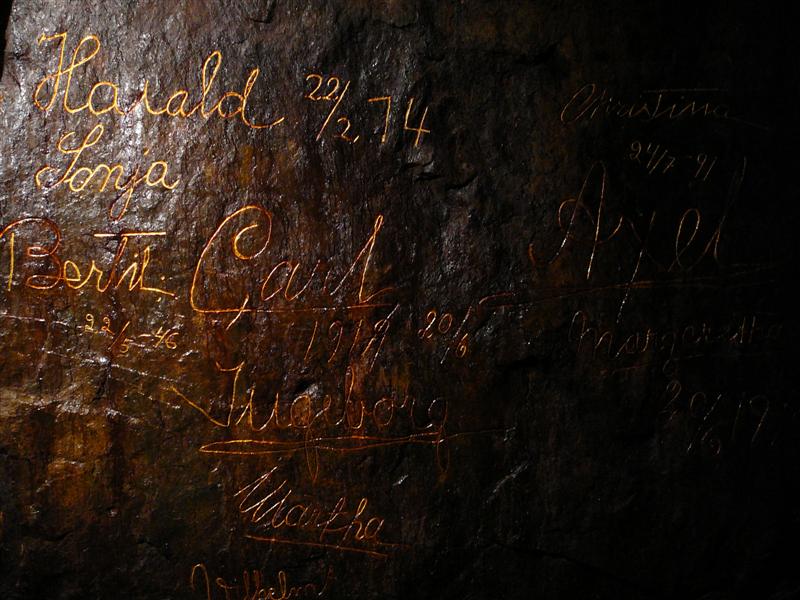 Harald 22/2 74
Sonja
Christina
24/7-91
Bertil.
22/5-46
Carl
1919 20/6
Axel
Margaretha
20/6 19
Ingeborg
Martha
Vilhelm